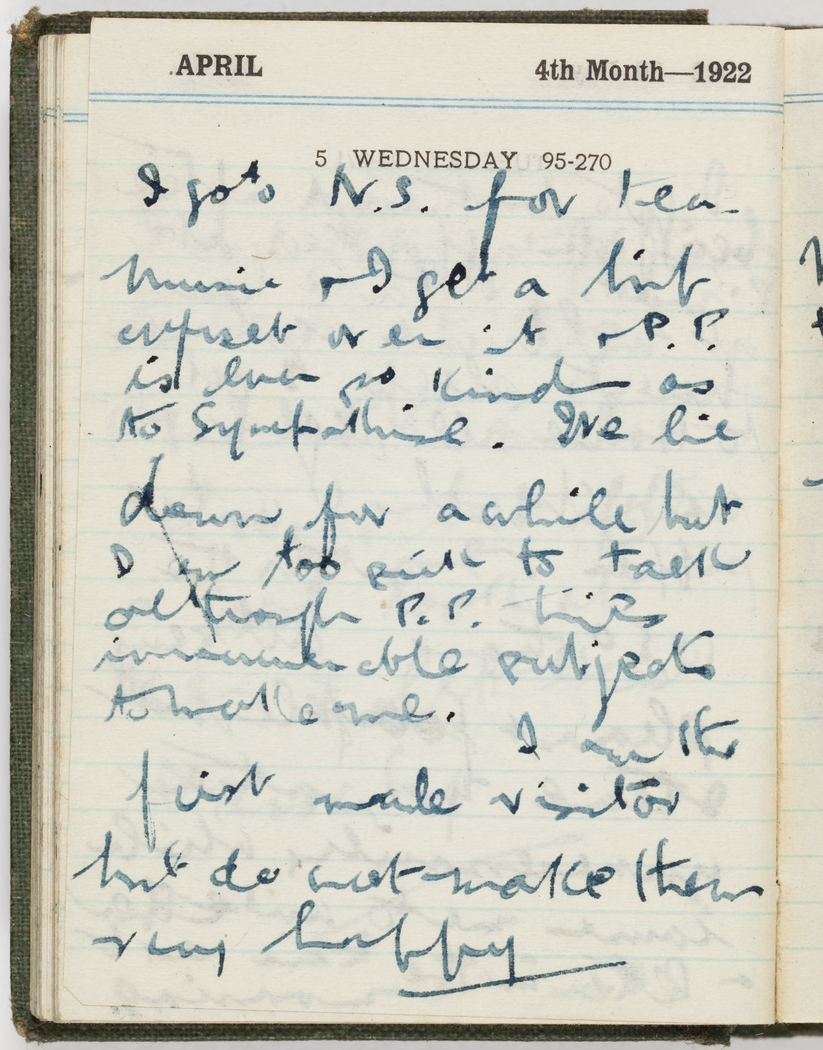 APRIL 4th Month—1922
5 WEDNESDAY 95-270
I go to N.S. for tea.
Music & I get a bit
upset over it & P.P.
is ever so kind as
to sympathise. We lie
down for awhile but
I am too sick to talk
although P.P. tries
innumerable subjects
to wake me.
I am the
first male visitor
but do not make them
very happy